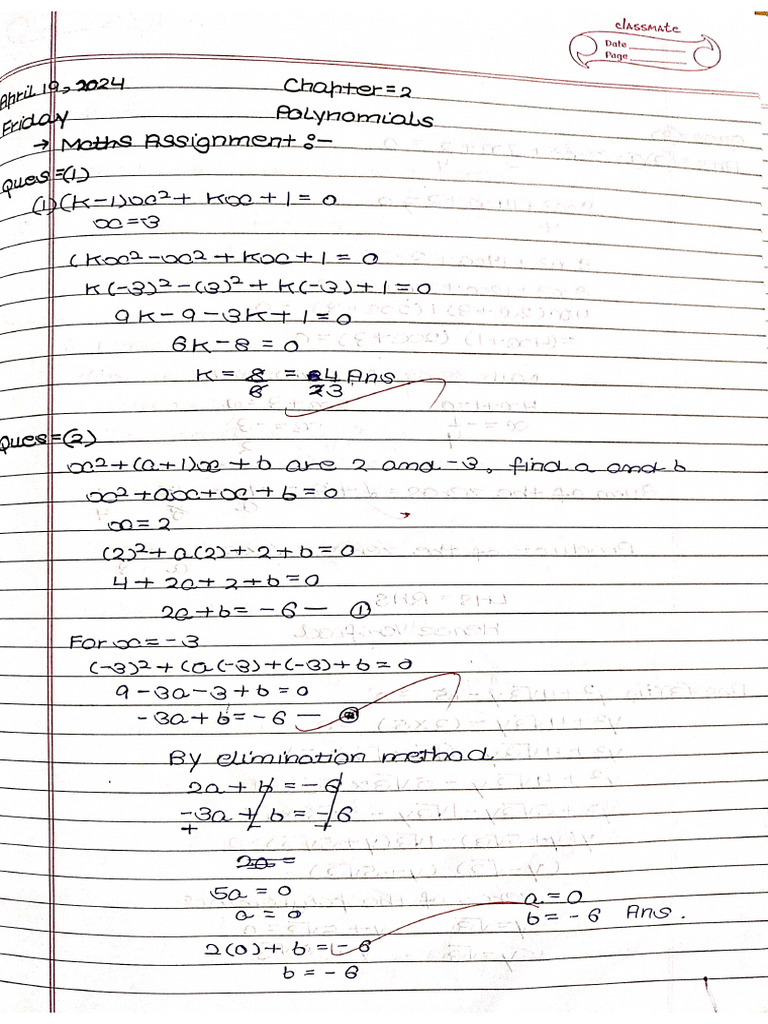 classmate
Date
Page
April 19, 2024
Chapter = 2
Friday
Polynomials
→ Maths Assignment :-
Ques = (1)
(1) (k-1)x² + kx + 1 = 0
x = -3
(kx² - x² + kx + 1 = 0
k(-3)² - (3)² + k(-3) + 1 = 0
9k - 9 - 3k + 1 = 0
6k - 8 = 0
k = 8/6 = 4/3 Ans
Ques = (2)
x² + (a+1)x + b are 2 and -3, find a and b
x² + ax + x + b = 0
x = 2
(2)² + a(2) + 2 + b = 0
4 + 2a + 2 + b = 0
2a + b = -6 — ①
For x = -3
(-3)² + (a(-3) + (-3) + b = 0
9 - 3a - 3 + b = 0
-3a + b = -6 — ②
By elimination method
2a + b = -6
-3a + b = -6
+ - +
2a =
5a = 0
a = 0
a = 0
b = -6 Ans.
2(0) + b = -6
b = -6